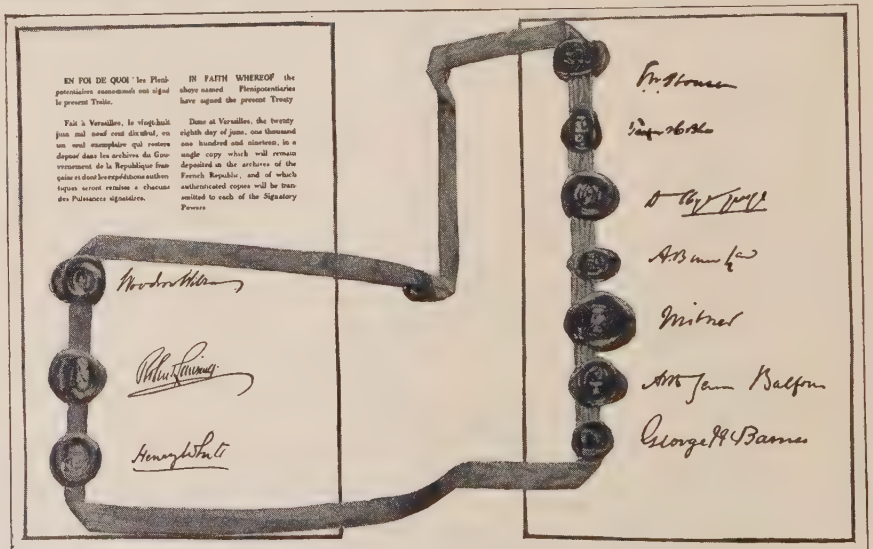 EN FOI DE QUOI les Pleni-
potentiaires susnommés ont signé
le present Traite.
Fait à Versailles, le vingthuit
juin mil neuf cent dix neuf, en
un seul exemplaire qui restera
deposé dans les archives du Gou-
vernement de la Republique fran
çaise et dont les expéditions authen
tiques seront remises a chacune
des Puissances signataires.
IN FAITH WHEREOF the
above named Plenipotentiaries
have signed the present Treaty
Done at Versailles, the twenty
eighth day of june, one thousand
one hundred and nineteen, in a
single copy which will remain
deposited in the archives of the
French Republic, and of which
authenticated copies will be tran-
smitted to each of the Signatory
Powers
Woodrow Wilson
Robert Lansing
Henry White
Milner
Balfour
George N Barnes